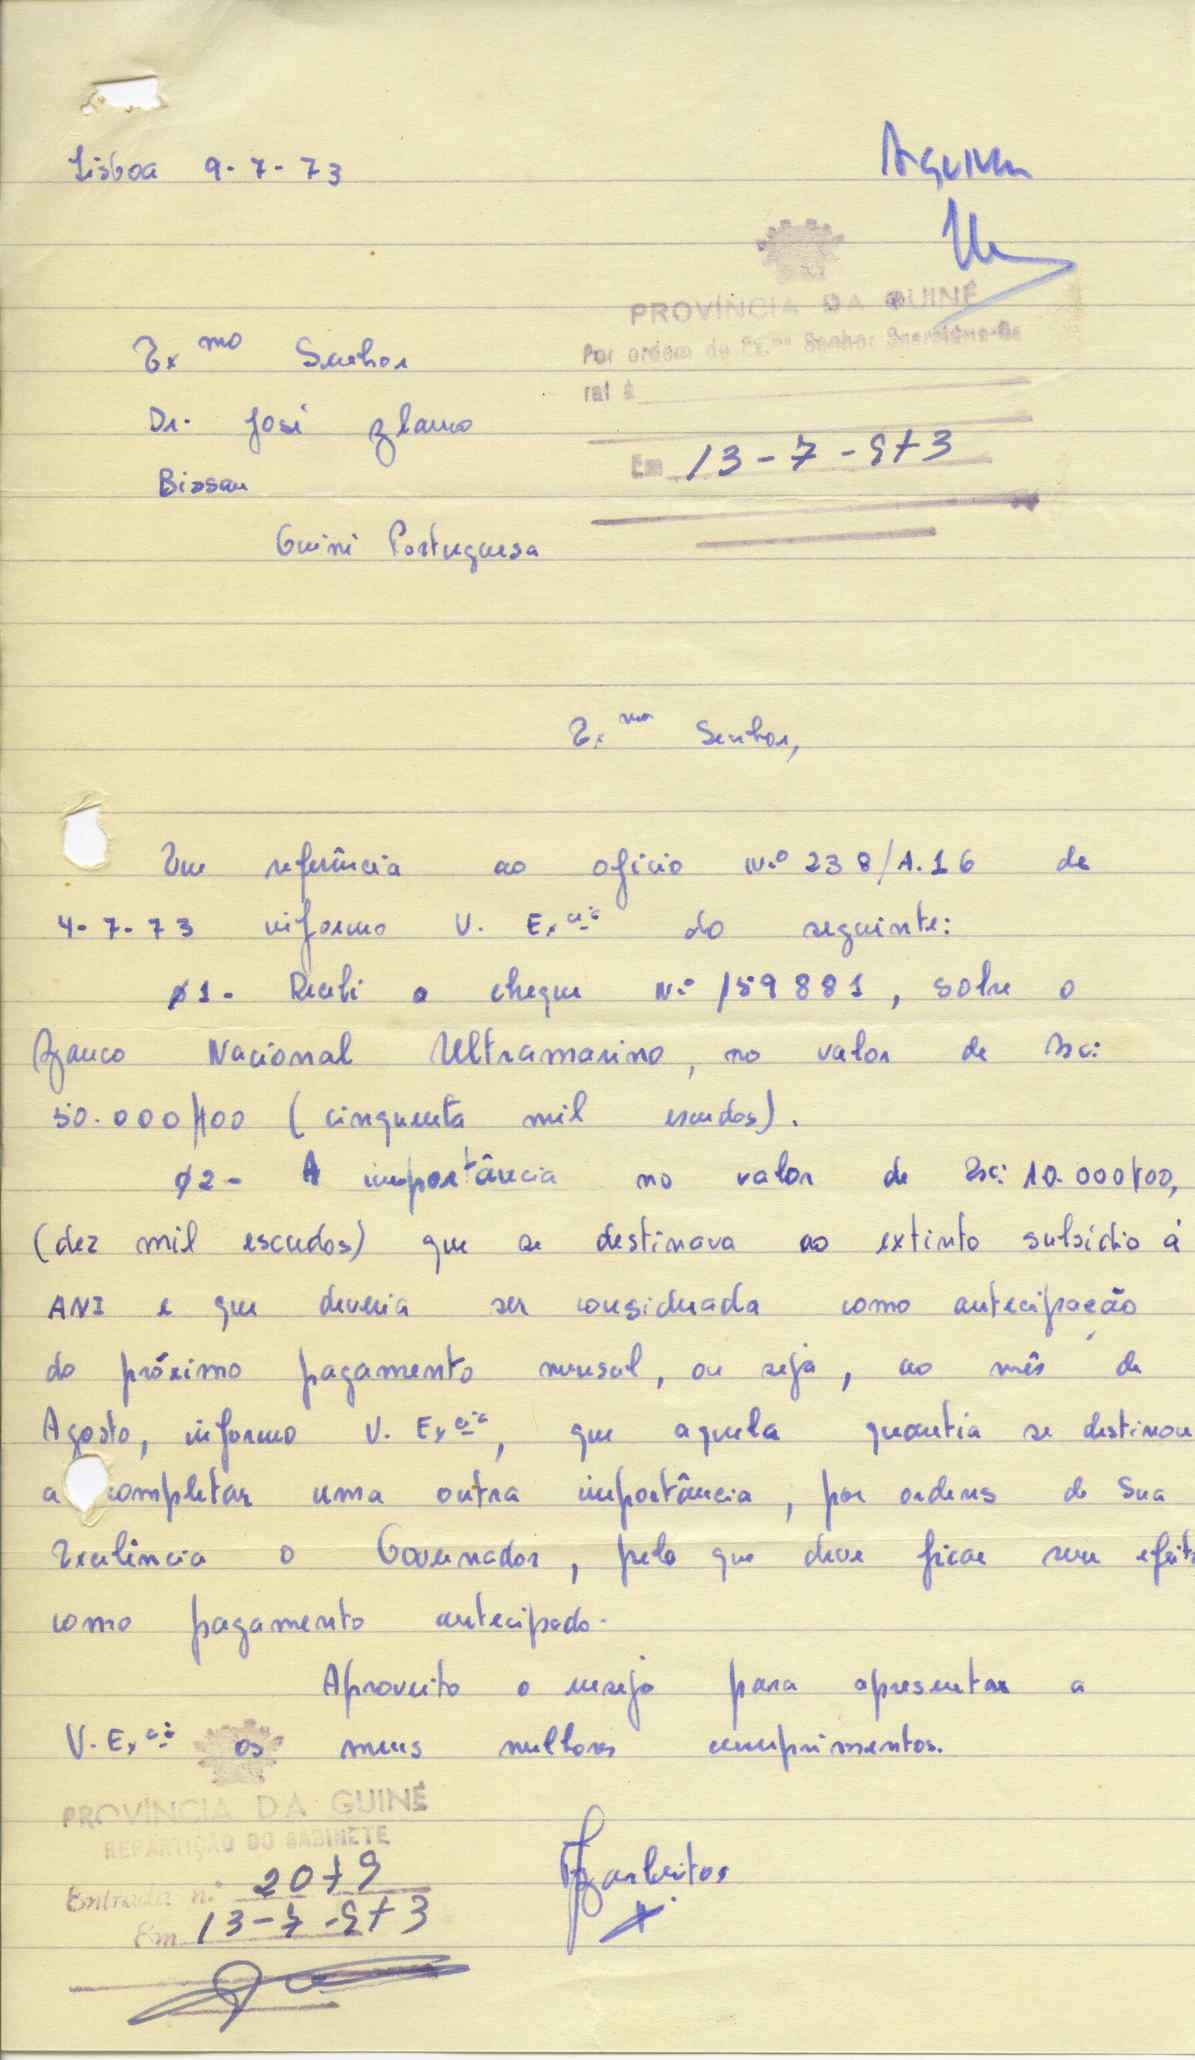 Lisboa 9-7-73
Arquive
PROVÍNCIA DA GUINÉ
Por ordem de Ex.mo Senhor Secretário-Ge
ral á
Em 13-7-973
Ex mo Senhor
Dr. José Blanco
Bissau
Guiné Portuguesa
Ex. mo Senhor,
Em referência ao ofício N.º 238/A.16 de
4-7-73 informo V. Ex.cia do seguinte:
01- Recebi o cheque N.º 159881, sobre o
Banco Nacional Ultramarino, no valor de Esc:
50.000$00 (cinquenta mil escudos).
02- A importância no valor de Esc: 10.000$00,
(dez mil escudos) que se destinava ao extinto subsídio à
ANI e que deveria ser considerada como antecipação
do próximo pagamento mensal, ou seja, ao mês de
Agosto, informo V. Ex.cia, que aquela quantia se destinou
a completar uma outra importância, por ordens de Sua
Excelência o Governador, pelo que deve ficar sem efeito
como pagamento antecipado.
Aproveito o ensejo para apresentar a
V. Ex.cia os meus melhores cumprimentos.
PROVÍNCIA DA GUINÉ
REPARTIÇÃO DO GABINETE
Entrada n.º 2079
Em 13-7-973
Barbeitos